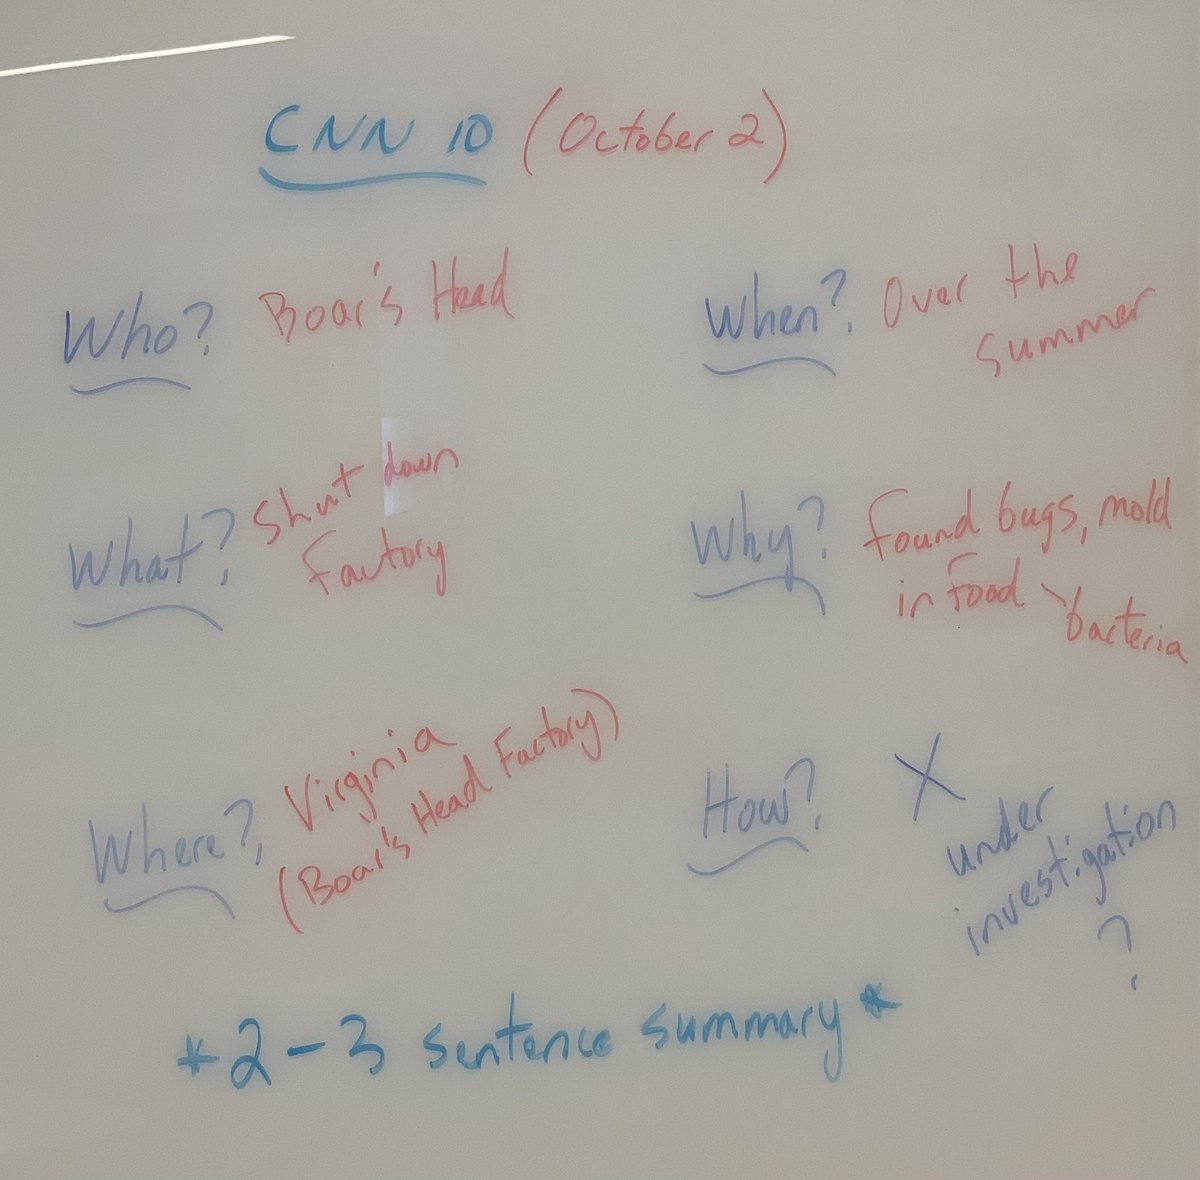 CNN 10 (October 2)
Who? Boar's Head
When? Over the
summer
What? Shut down
Factory
Why? Found bugs, mold
in Food bacteria
Where? Virginia
(Boar's Head Factory)
How? X
under
investigation
?
*2-3 sentence summary*